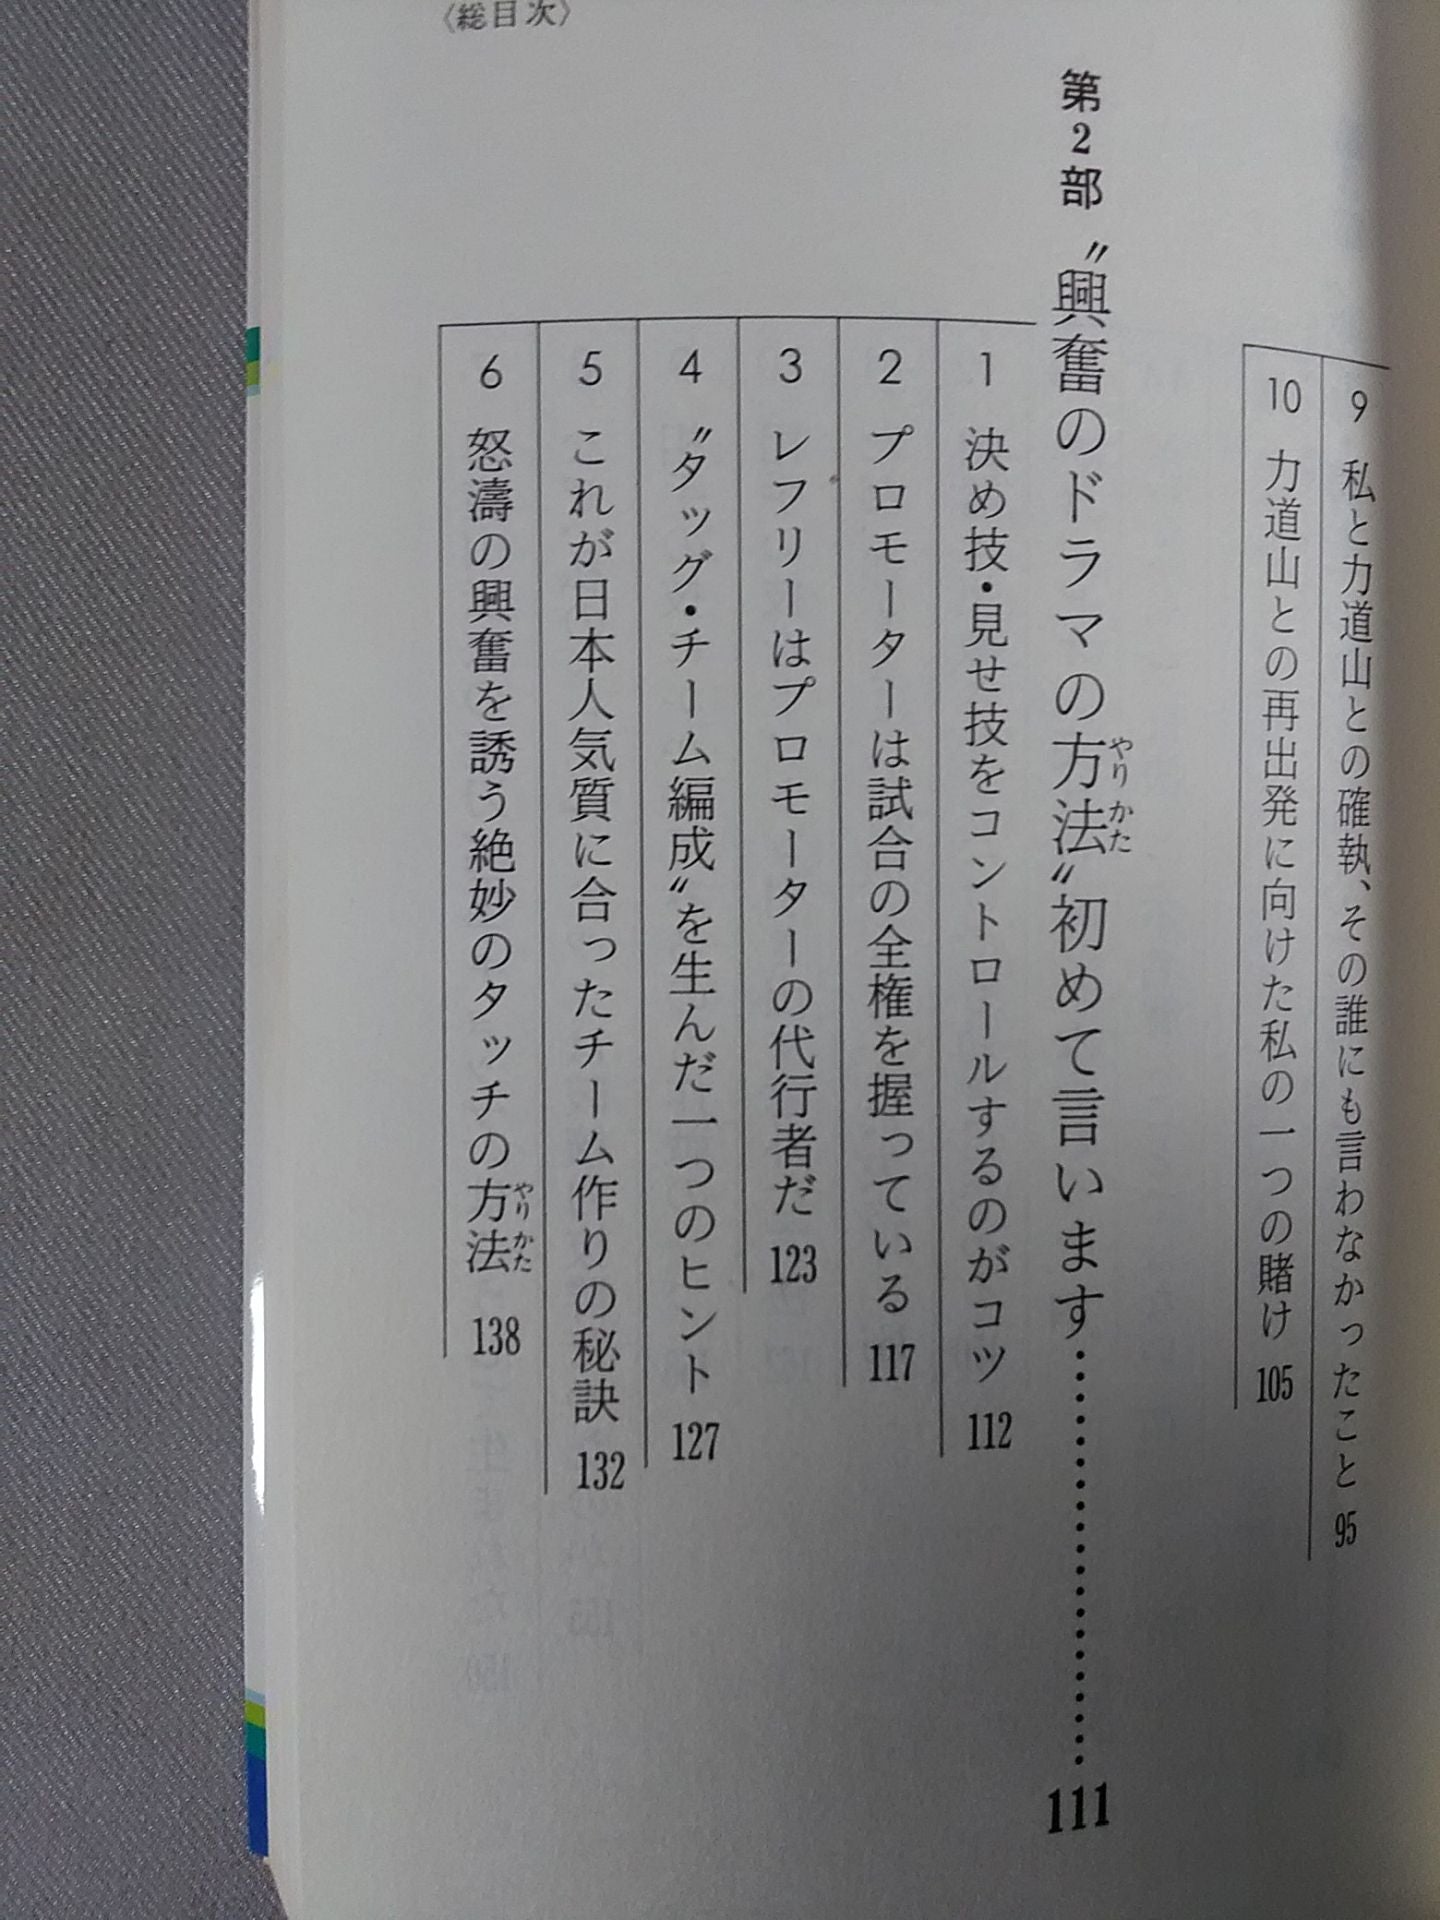 〈総目次〉
9 私と力道山との確執、その誰にも言わなかったこと 95
10 力道山との再出発に向けた私の一つの賭け 105
第2部 〝興奮のドラマの方法〟初めて言います…………………… 111
やり かた
1 決め技・見せ技をコントロールするのがコツ 112
2 プロモーターは試合の全権を握っている 117
3 レフリーはプロモーターの代行者だ 123
4 〝タッグ・チーム編成〟を生んだ一つのヒント 127
5 これが日本人気質に合ったチーム作りの秘訣 132
6 怒濤の興奮を誘う絶妙のタッチの方法 138
やり かた